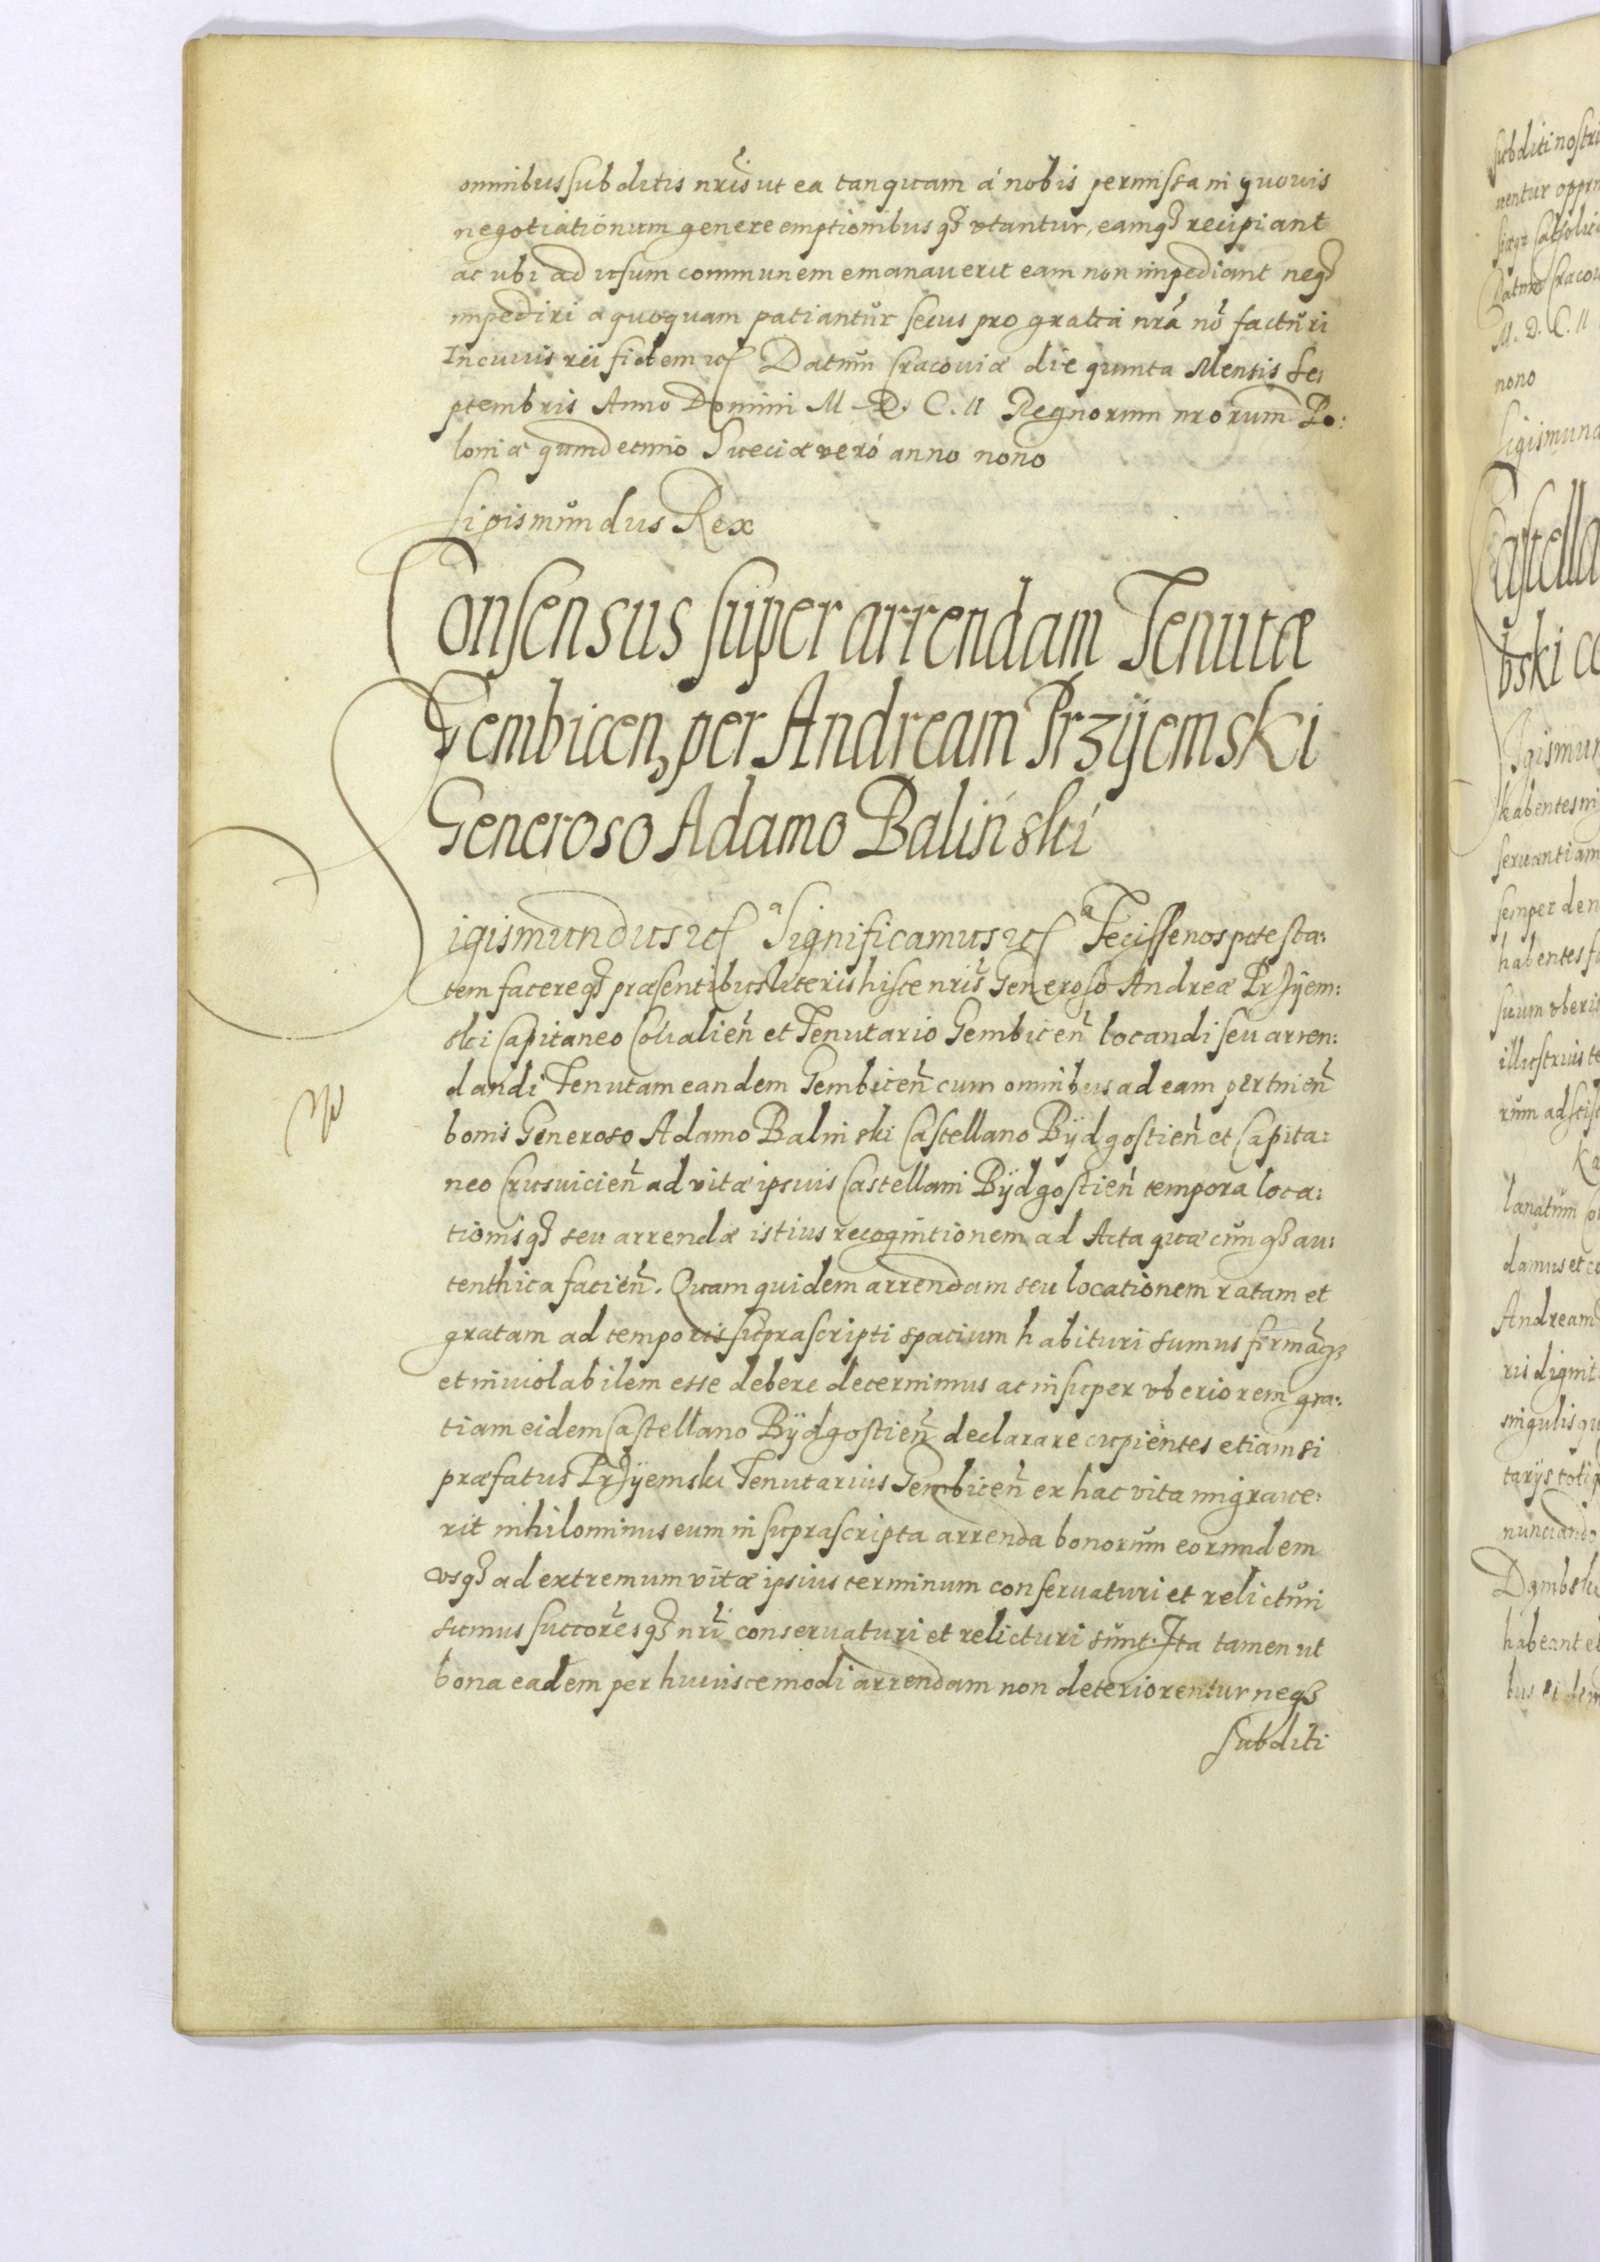 omnibus subditis nr̃is ut ea tanquam à nobis permissa in quovis
negotiationum genere emptionibusq₃ utantur, eamq₃ recipiant
ac ubi ad usum communem emanaverit eam non impediant neq₃
impediri a quoquam patiantur secus pro gratia nr̃a nõ facturi
In cuius rei fidem etc Datum Cracoviæ die quinta Mensis Se:
ptembris Anno Domini M. D. C. II Regnorum nrorum Po:
loniæ quindecimo Sueciæ verò anno nono
Sigismundus Rex
Consensus super arrendam Tenutæ
Gembicen, per Andream Przÿemski
Generoso Adamo Balinski
Sigismundus etc Significamus etc Fecisse nos potesta:
tem facereq₃ præsentibus literis hisce nr̃is Generoso Andreæ Przÿem:
ski Capitaneo Covalien̄ et Tenutario Gembicen̄ locandi seu arren:
dandi Tenutam eandem Gembicen̄ cum omnibus ad eam pertinen̄
bonis Generoso Adamo Balinski Castellano Bÿdgostien̄ et Capita:
neo Crusvicien̄ ad vitæ ipsius Castellani Bÿdgostien̄ tempora loca:
tionisq₃ seu arrendæ istius recognitionem ad Acta quæcunq₃ au:
tenthica facien̄. Quam quidem arrendam seu locationem ratam et
gratam ad temporis suprascripti spacium habituri sumus firmãq₃
et inviolabilem esse debere decernimus ac insuper uberiorem gra:
tiam eidem Castellano Bÿdgostien̄ declarare cupientes etiamsi
præfatus Przÿemski Tenutarius Gembicen̄ ex hac vita migrave:
rit nihilominus eum in suprascripta arrenda bonorum eorundem
usq₃ ad extremum vitæ ipsius terminum conservaturi et relicturi
sumus successoresq₃ nr̃i conservaturi et relicturi sunt. Ita tamen ut
bona eadem per huiuscemodi arrendam non deteriorentur neq₃
subditi
subditi nostri
M. D. C. II
nono
Sigismund
Castella
bski co
habentes
semper
habentes
Andream
habeant et